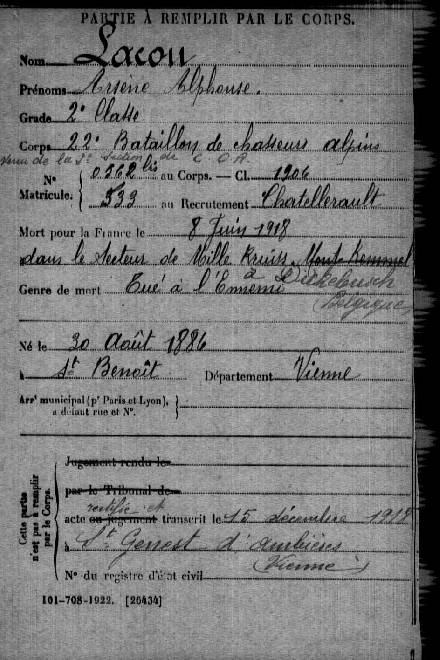 PARTIE À REMPLIR PAR LE CORPS.
Nom Lacon
Prénoms Arsène Alphonse.
Grade 2e Classe
Corps 22e Bataillon de chasseurs alpins
venu de la 3e Section de C.O.A.
N° 0.262 bis au Corps. — Cl. 1906
Matricule. 533 au Recrutement Chatellerault
Mort pour la France le 8 Juin 1918
dans le Secteur de Mille Kruis, Mont Kemmel
à Dickebusch
Genre de mort Tué à l'Ennemi
(Belgique)
Né le 30 Août 1886
à St Benoît Département Vienne
Arrt municipal (pr Paris et Lyon),
à défaut rue et N°.
Cette partie n'est pas à remplir par le Corps.
Jugement rendu le
par le Tribunal de
rectifié et
acte ou jugement transcrit le 15 décembre 1918
à St Genest d'Ambières
(Vienne)
N° du registre d'état civil
101-708-1922. [26434]